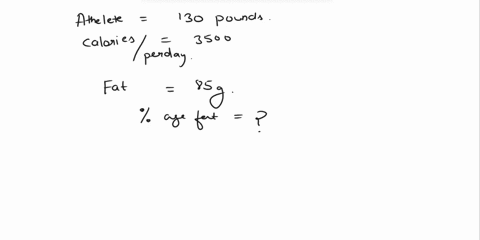 Athelete = 130 pounds.
Calories/perday = 3500
Fat = 85g.
% age fat = ?